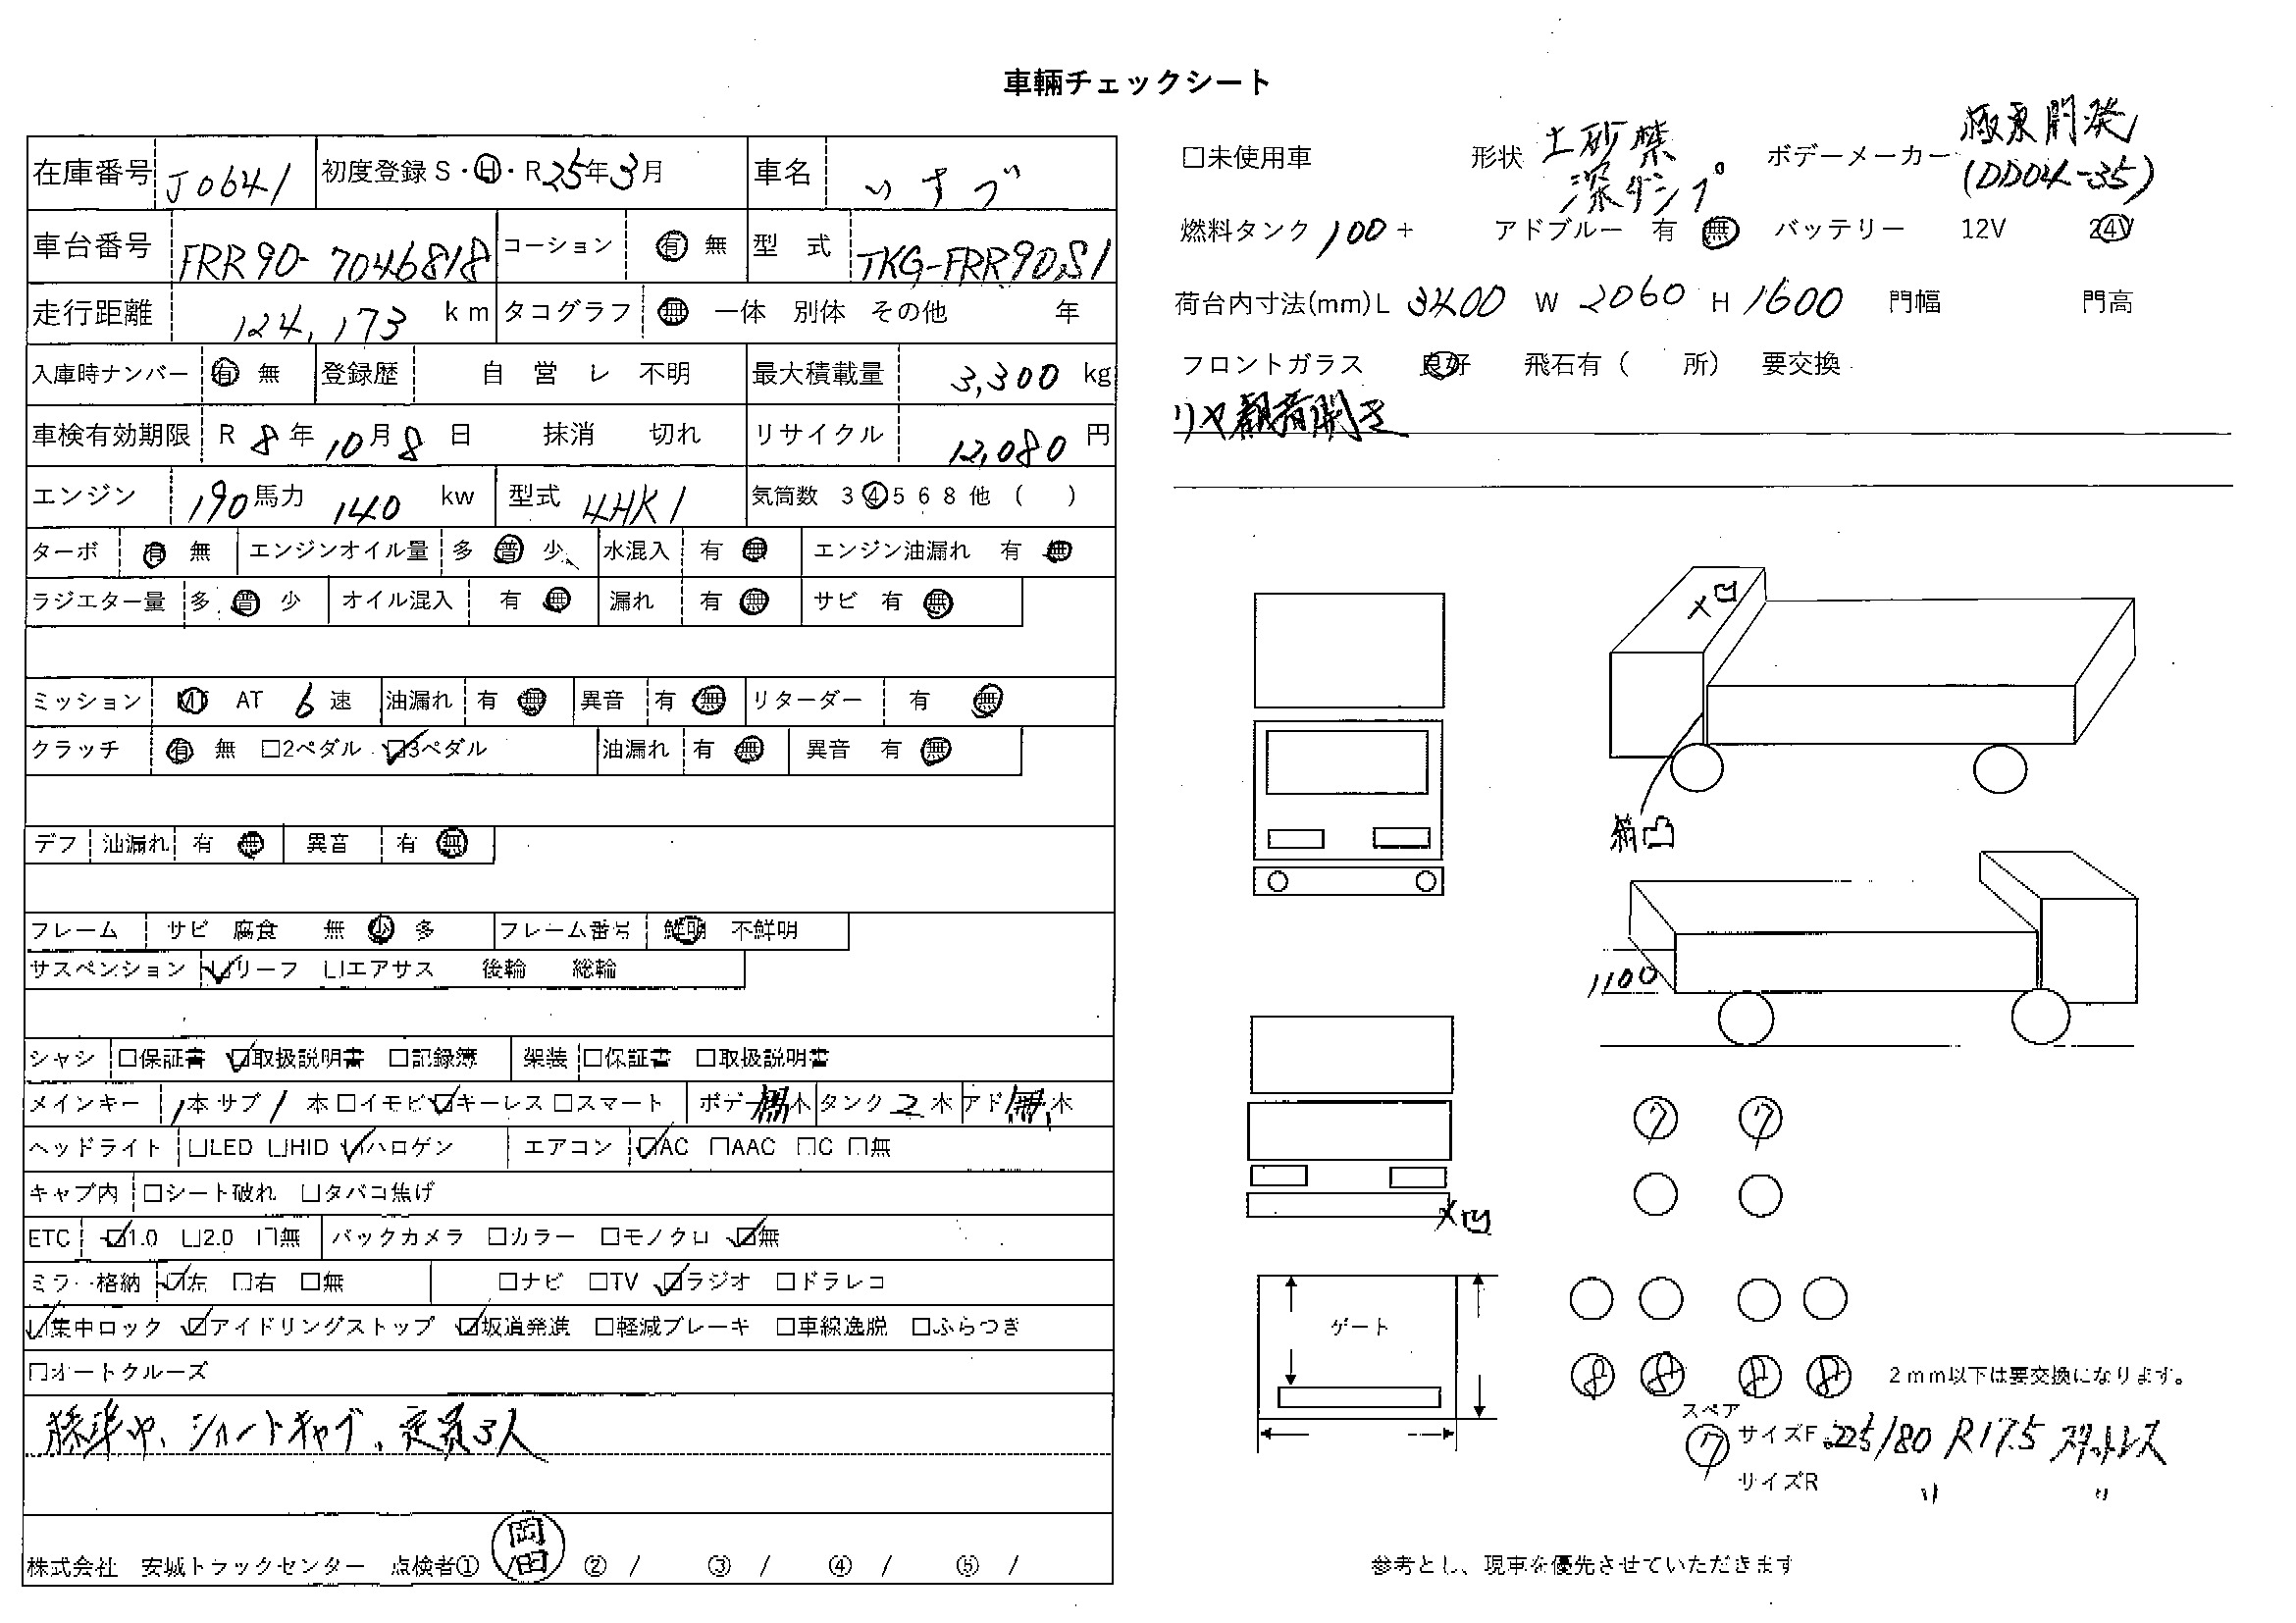 車輛チェックシート
在庫番号 J0641 初度登録 S・H・R 25年3月 車名 いすゞ
車台番号 FRR90-7046818 コーション 有 無 型式 TKG-FRR90S1
走行距離 124,173 km タコグラフ 無 一体 別体 その他 年
入庫時ナンバー 有 無 登録歴 自 営 レ 不明 最大積載量 3,300 kg
車検有効期限 R 8年10月8日 抹消 切れ リサイクル 12,080 円
エンジン 190馬力 140 kw 型式 4HK1 気筒数 3 4 5 6 8 他 ( )
ターボ 有 無 エンジンオイル量 多 普 少 水混入 有 無 エンジン油漏れ 有 無
ラジエター量 多 普 少 オイル混入 有 無 漏れ 有 無 サビ 有 無
ミッション MT AT 6速 油漏れ 有 無 異音 有 無 リターダー 有 無
クラッチ 有 無 □2ペダル ☑3ペダル 油漏れ 有 無 異音 有 無
デフ 油漏れ 有 無 異音 有 無
フレーム サビ 腐食 無 少 多 フレーム番号 鮮明 不鮮明
サスペンション ☑リーフ □エアサス 後輪 総輪
シャシ □保証書 ☑取扱説明書 □記録簿 架装 □保証書 □取扱説明書
メインキー 1本 サブ 1本 □イモビ ☑キーレス □スマート ボデー 無 本 タンク 2 本 アド 無 本
ヘッドライト □LED □HID ☑ハロゲン エアコン ☑AC □AAC □C □無
キャブ内 □シート破れ □タバコ焦げ
ETC ☑1.0 □2.0 □無 バックカメラ □カラー □モノクロ ☑無
ミラー格納 ☑左 □右 □無 □ナビ □TV ☑ラジオ □ドラレコ
☑集中ロック ☑アイドリングストップ ☑坂道発進 □軽減ブレーキ □車線逸脱 □ふらつき
□オートクルーズ
標準巾、ショートキャブ、定員3人
株式会社 安城トラックセンター 点検者① / 岡田 ② / ③ / ④ / ⑤ /
□未使用車 形状 土砂禁 深ダンプ ボデーメーカー 極東開発 (DD04-35)
燃料タンク 100+ アドブルー 有 無 バッテリー 12V 24V
荷台内寸法(mm)L 3400 W 2060 H 1600 門幅 門高
フロントガラス 良好 飛石有( 所) 要交換
リヤ観音開き
×凹
凸
1100
7 7
×凹
ゲート
8 8 8 8 2mm以下は要交換になります。
スペア
7 サイズF 225/80 R17.5 スタットレス
サイズR 〃 〃
参考とし、現車を優先させていただきます